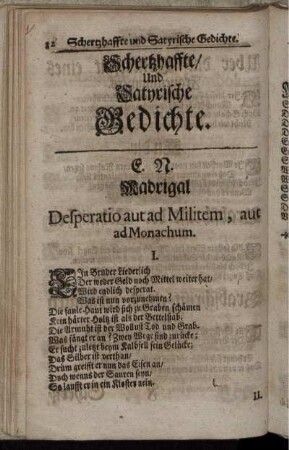 82 Schertzhaffte und Satyrische Gedichte.
Schertzhaffte/
Und
Satyrische
Gedichte.
E. N.
Madrigal
Desperatio aut ad Militem, aut
ad Monachum.
I.
EIn Bruder Liederlich
Der weder Geld noch Mittel weiter hat/
Wird endlich desperat.
Was ist nun vorzunehmen?
Die faule Haut wird sich zu Graben schämen
Kein härter Holtz ist als der Bettelstab.
Die Armuht ist der Wollust Tod und Grab.
Was fängt er an? Zwey Wege sind zurücke;
Er sucht zuletzt beym Kalbfell sein Gelücke;
Das Silber ist verthan/
Drüm greifft er nun das Eisen an/
Doch wenns der Sauren seyn/
So laufft er in ein Kloster nein.
II.